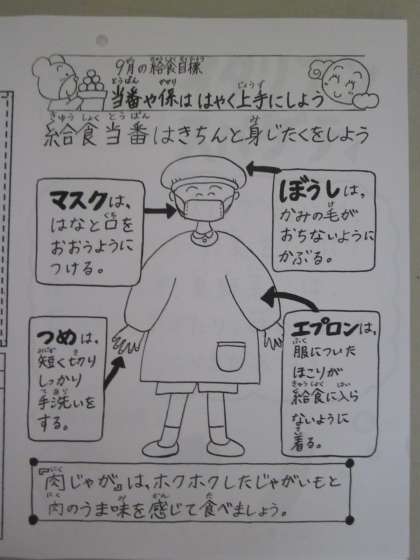 9月の給食目標
当番や係は はやく上手にしよう
給食当番はきちんと身じたくをしよう
マスクは、
はなと口を
おおうように
つける。
ぼうしは、
かみの毛が
おちないように
かぶる。
つめは、
短く切り
しっかり
手洗いを
する。
エプロンは、
服についた
ほこりが
給食に入ら
ないように
着る。
『肉じゃが』は、ホクホクしたじゃがいもと
肉のうま味を感じて食べましょう。